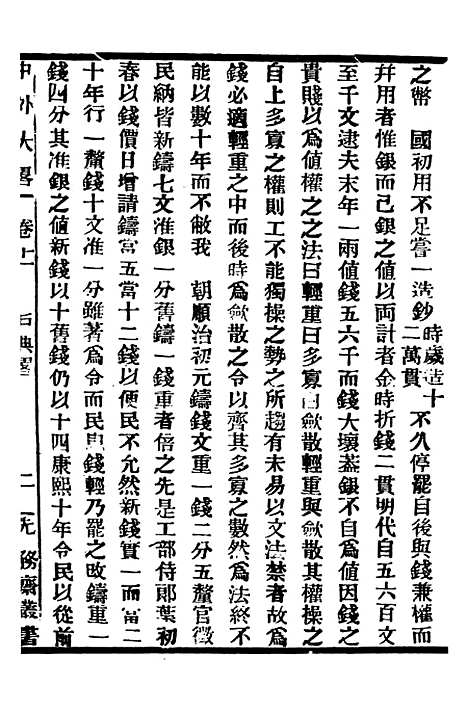 之幣　國初用不足嘗一造鈔時歲造十二萬貫不久停罷自後與錢兼權而
幷用者惟銀而已銀之值以両計者金時折錢二貫明代自五六百文
至千文逮夫末年一兩值錢五六千而錢大壞葢銀不自爲值因錢之
貴賤以爲值權之之法曰輕重曰多寡曰歛散輕重與歛散其權操之
自上多寡之權則工不能獨操之勢之所趨有未易以文法禁者故爲
錢必適輕重之中而後時爲歛散之令以齊其多寡之數然爲法終不
能以數十年而不敝我　朝順治初元鑄錢文重一錢二分五釐官徵
民納皆新鑄七文准銀一分舊鑄一錢重者倍之先是工部侍郞葉初
春以錢價日增請鑄當五當十二錢以便民不允然新錢實一而當二
十年行一釐錢十文准一分雖著爲令而民患錢輕乃罷之改鑄重一
錢四分其准銀之值新錢以十舊錢仍以十四康熙十年令民以從前
中外大畧一　卷上　　二　无務齋叢書